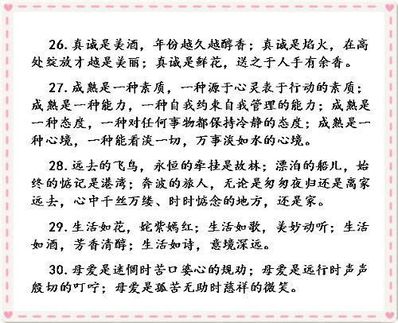 26.真诚是美酒，年份越久越醇香；真诚是焰火，在高
处绽放才越是美丽；真诚是鲜花，送之于人手有余香。
27.成熟是一种素质，一种源于心灵表于行动的素质；
成熟是一种能力，一种自我约束自我管理的能力；成熟是
一种态度，一种对任何事物都保持冷静的态度；成熟是一
种心境，一种能看淡一切，万事淡如水的心境。
28.远去的飞鸟，永恒的牵挂是故林；漂泊的船儿，始
终的惦记是港湾；奔波的旅人，无论是匆匆夜归还是离家
远去，心中千丝万缕、时时惦念的地方，还是家。
29.生活如花，姹紫嫣红；生活如歌，美妙动听；生活
如酒，芳香清醇；生活如诗，意境深远。
30.母爱是迷惘时苦口婆心的规劝；母爱是远行时声声
殷切的叮咛；母爱是孤苦无助时慈祥的微笑。